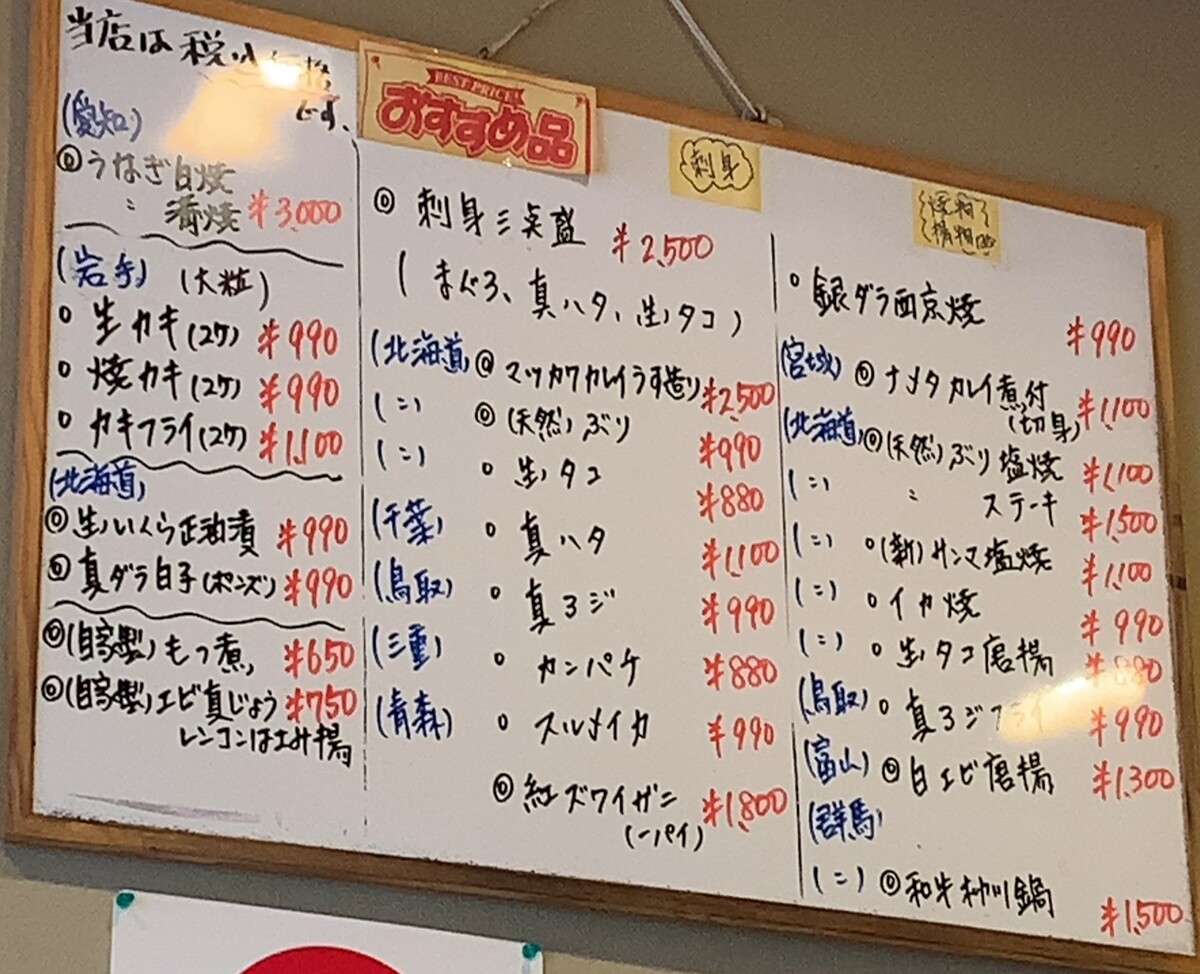 当店は税
です、
(愛知)
◎うなぎ白焼
〃 蒲焼 ¥3,000
(岩手) (大粒)
○生カキ(2ケ) ¥990
○焼カキ(2ケ) ¥990
○カキフライ(2ケ) ¥1,100
(北海道)
◎生いくら正油漬 ¥990
◎真ダラ白子(ポンズ) ¥990
◎(自家製)もつ煮 ¥650
◎(自家製)エビ真じょう ¥750
レンコンはさみ揚
BEST PRICE
おすすめ品
刺身
◎刺身三点盛 ¥2,500
(まぐろ、真ハタ、生タコ)
(北海道)◎マツカワカレイうす造り ¥2,500
(〃) ◎(天然)ぶり ¥990
(〃) ○生タコ ¥880
(千葉) ○真ハタ ¥1,100
(鳥取) ○真アジ ¥990
(三重) ○カンパチ ¥880
(青森) ○スルメイカ ¥990
◎紅ズワイガニ ¥1,800
(一パイ)
○銀ダラ西京焼 ¥990
(宮城) ◎ナメタカレイ煮付 ¥1,100
(切身)
(北海道)◎(天然)ぶり塩焼 ¥1,100
(〃) 〃 ステーキ ¥1,500
(〃) ○(新)サンマ塩焼 ¥1,100
(〃) ○イカ焼 ¥990
(〃) ○生タコ唐揚 ¥880
(鳥取) ○真アジフライ ¥990
(富山) ◎白エビ唐揚 ¥1,300
(群馬)
(〃) ◎和牛 鍋 ¥1,500